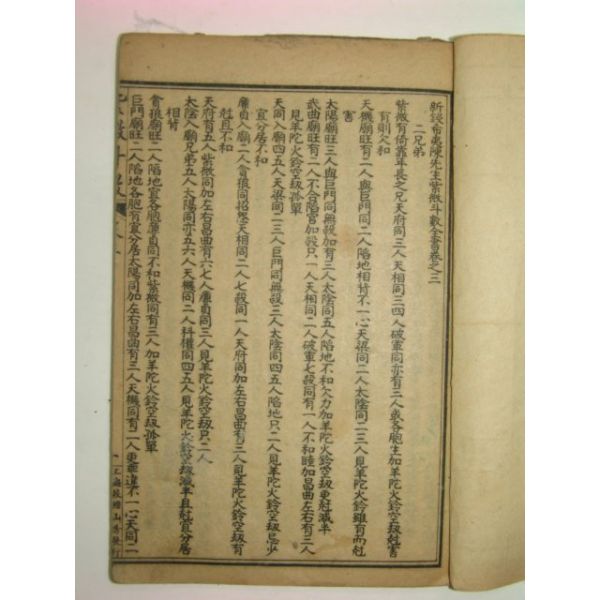 新鋟希夷陳先生紫微斗數全書卷之三
二兄弟
紫微有倚靠年長之兄天府同三人天相同三四人破軍同亦有三人或各胞生加羊陀火鈴空刼尅害
有則欠和
天機廟旺有二人與巨門同二人陷地相背不一心天梁同二人太陰同二三人見羊陀火鈴雖有而尅
害
太陽廟旺三人與巨門同無殺加有三人太陰同五人陷地不和欠力加羊陀火鈴空刼更尅減半
武曲廟旺有二人不合陷宮加殺只一人天相同二人破軍七殺同有一人不和睦加昌曲左右有三人
見羊陀火鈴空刼孤單
天同入廟四五人天梁同二三人巨門同無殺三人太陰同四五人陷地只二人見羊陀火鈴空刼忌少
宜分居不和
廉貞入廟二人貪狼同招怨天相同二人七殺同一人天府同加左右昌曲有三人見羊陀火鈴空刼有
尅且不和
天府有五人紫微同加左右昌曲有六七人廉貞同三人見羊陀火鈴空刼只二人
太陰入廟兄弟五人太陽同亦五六人天機同二人科權同四五人見羊陀火鈴空刼減半且尅宜分居
相背
貪狼廟旺二人陷地宜各胞廉貞同不和紫微同有三人加羊陀火鈴空刼孤單
巨門廟旺二人陷地各胞有宜分居太陽同加左右昌曲有三人天機同有二人更乖違不一心天同二
上海錦章圖書局印行